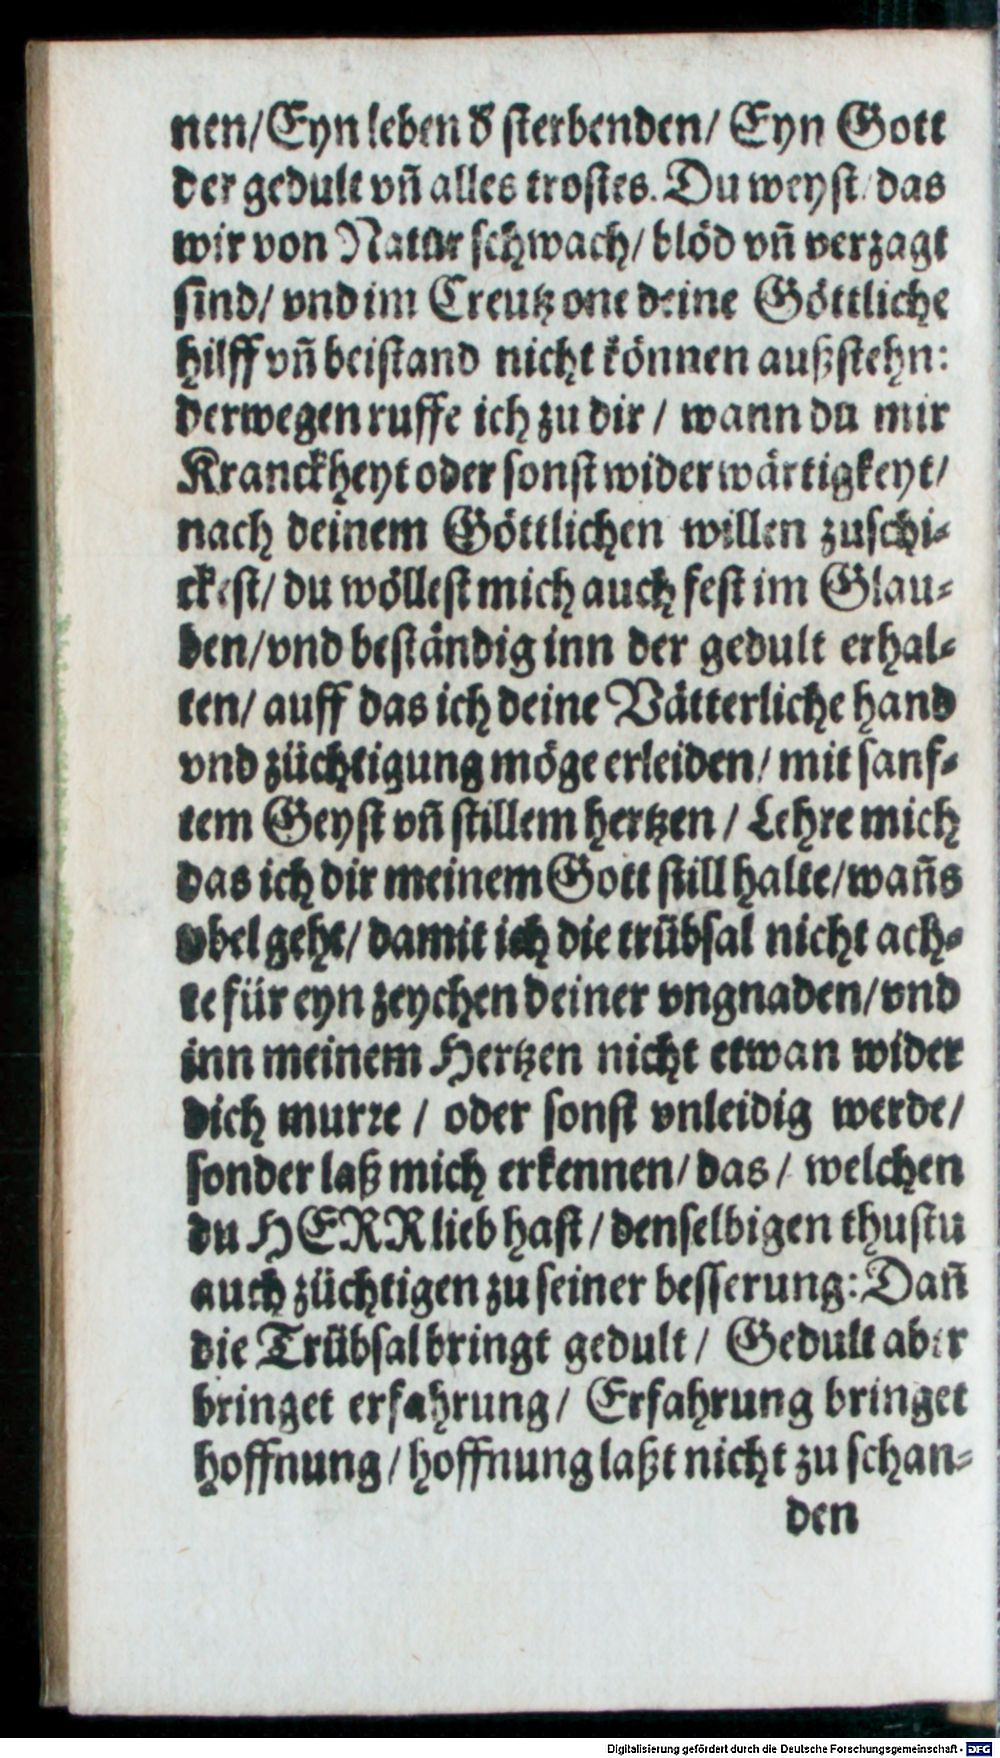 nen/ Eyn leben d̕ sterbenden/ Eyn Gott
der gedult vñ alles trostes. Du weyst/ das
wir von Natur schwach/ blöd vñ verzagt
sind/ vnd im Creutz one deine Göttliche
hilff vñ beistand nicht können außstehn:
derwegen ruffe ich zu dir / wann du mir
Kranckheyt oder sonst widerwärtigkeyt/
nach deinem Göttlichen willen zuschi⸗
ckest/ du wöllest mich auch fest im Glau⸗
ben/ vnd beständig inn der gedult erhal⸗
ten/ auff das ich deine Vätterliche hand
vnd züchtigung möge erleiden/ mit sanf⸗
tem Geyst vñ stillem hertzen / Lehre mich
das ich dir meinem Gott still halte/ wañs
vbel geht/ damit ich die trübsal nicht ach⸗
te für eyn zeychen deiner vngnaden/ vnd
inn meinem Hertzen nicht etwan wider
dich murre / oder sonst vnleidig werde/
sonder laß mich erkennen/ das / welchen
du HERR lieb hast / denselbigen thustu
auch züchtigen zu seiner besserung: Dañ
die Trübsal bringt gedult / Gedult aber
bringet erfahrung / Erfahrung bringet
hoffnung / hoffnung laßt nicht zu schan⸗
den
Digitalisierung gefördert durch die Deutsche Forschungsgemeinschaft - DFG